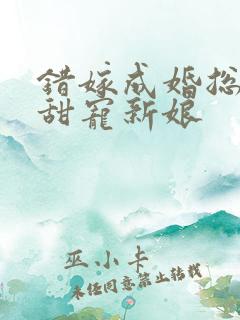 错嫁成婚总
甜宠新娘
巫小卡
未经同意禁止转载